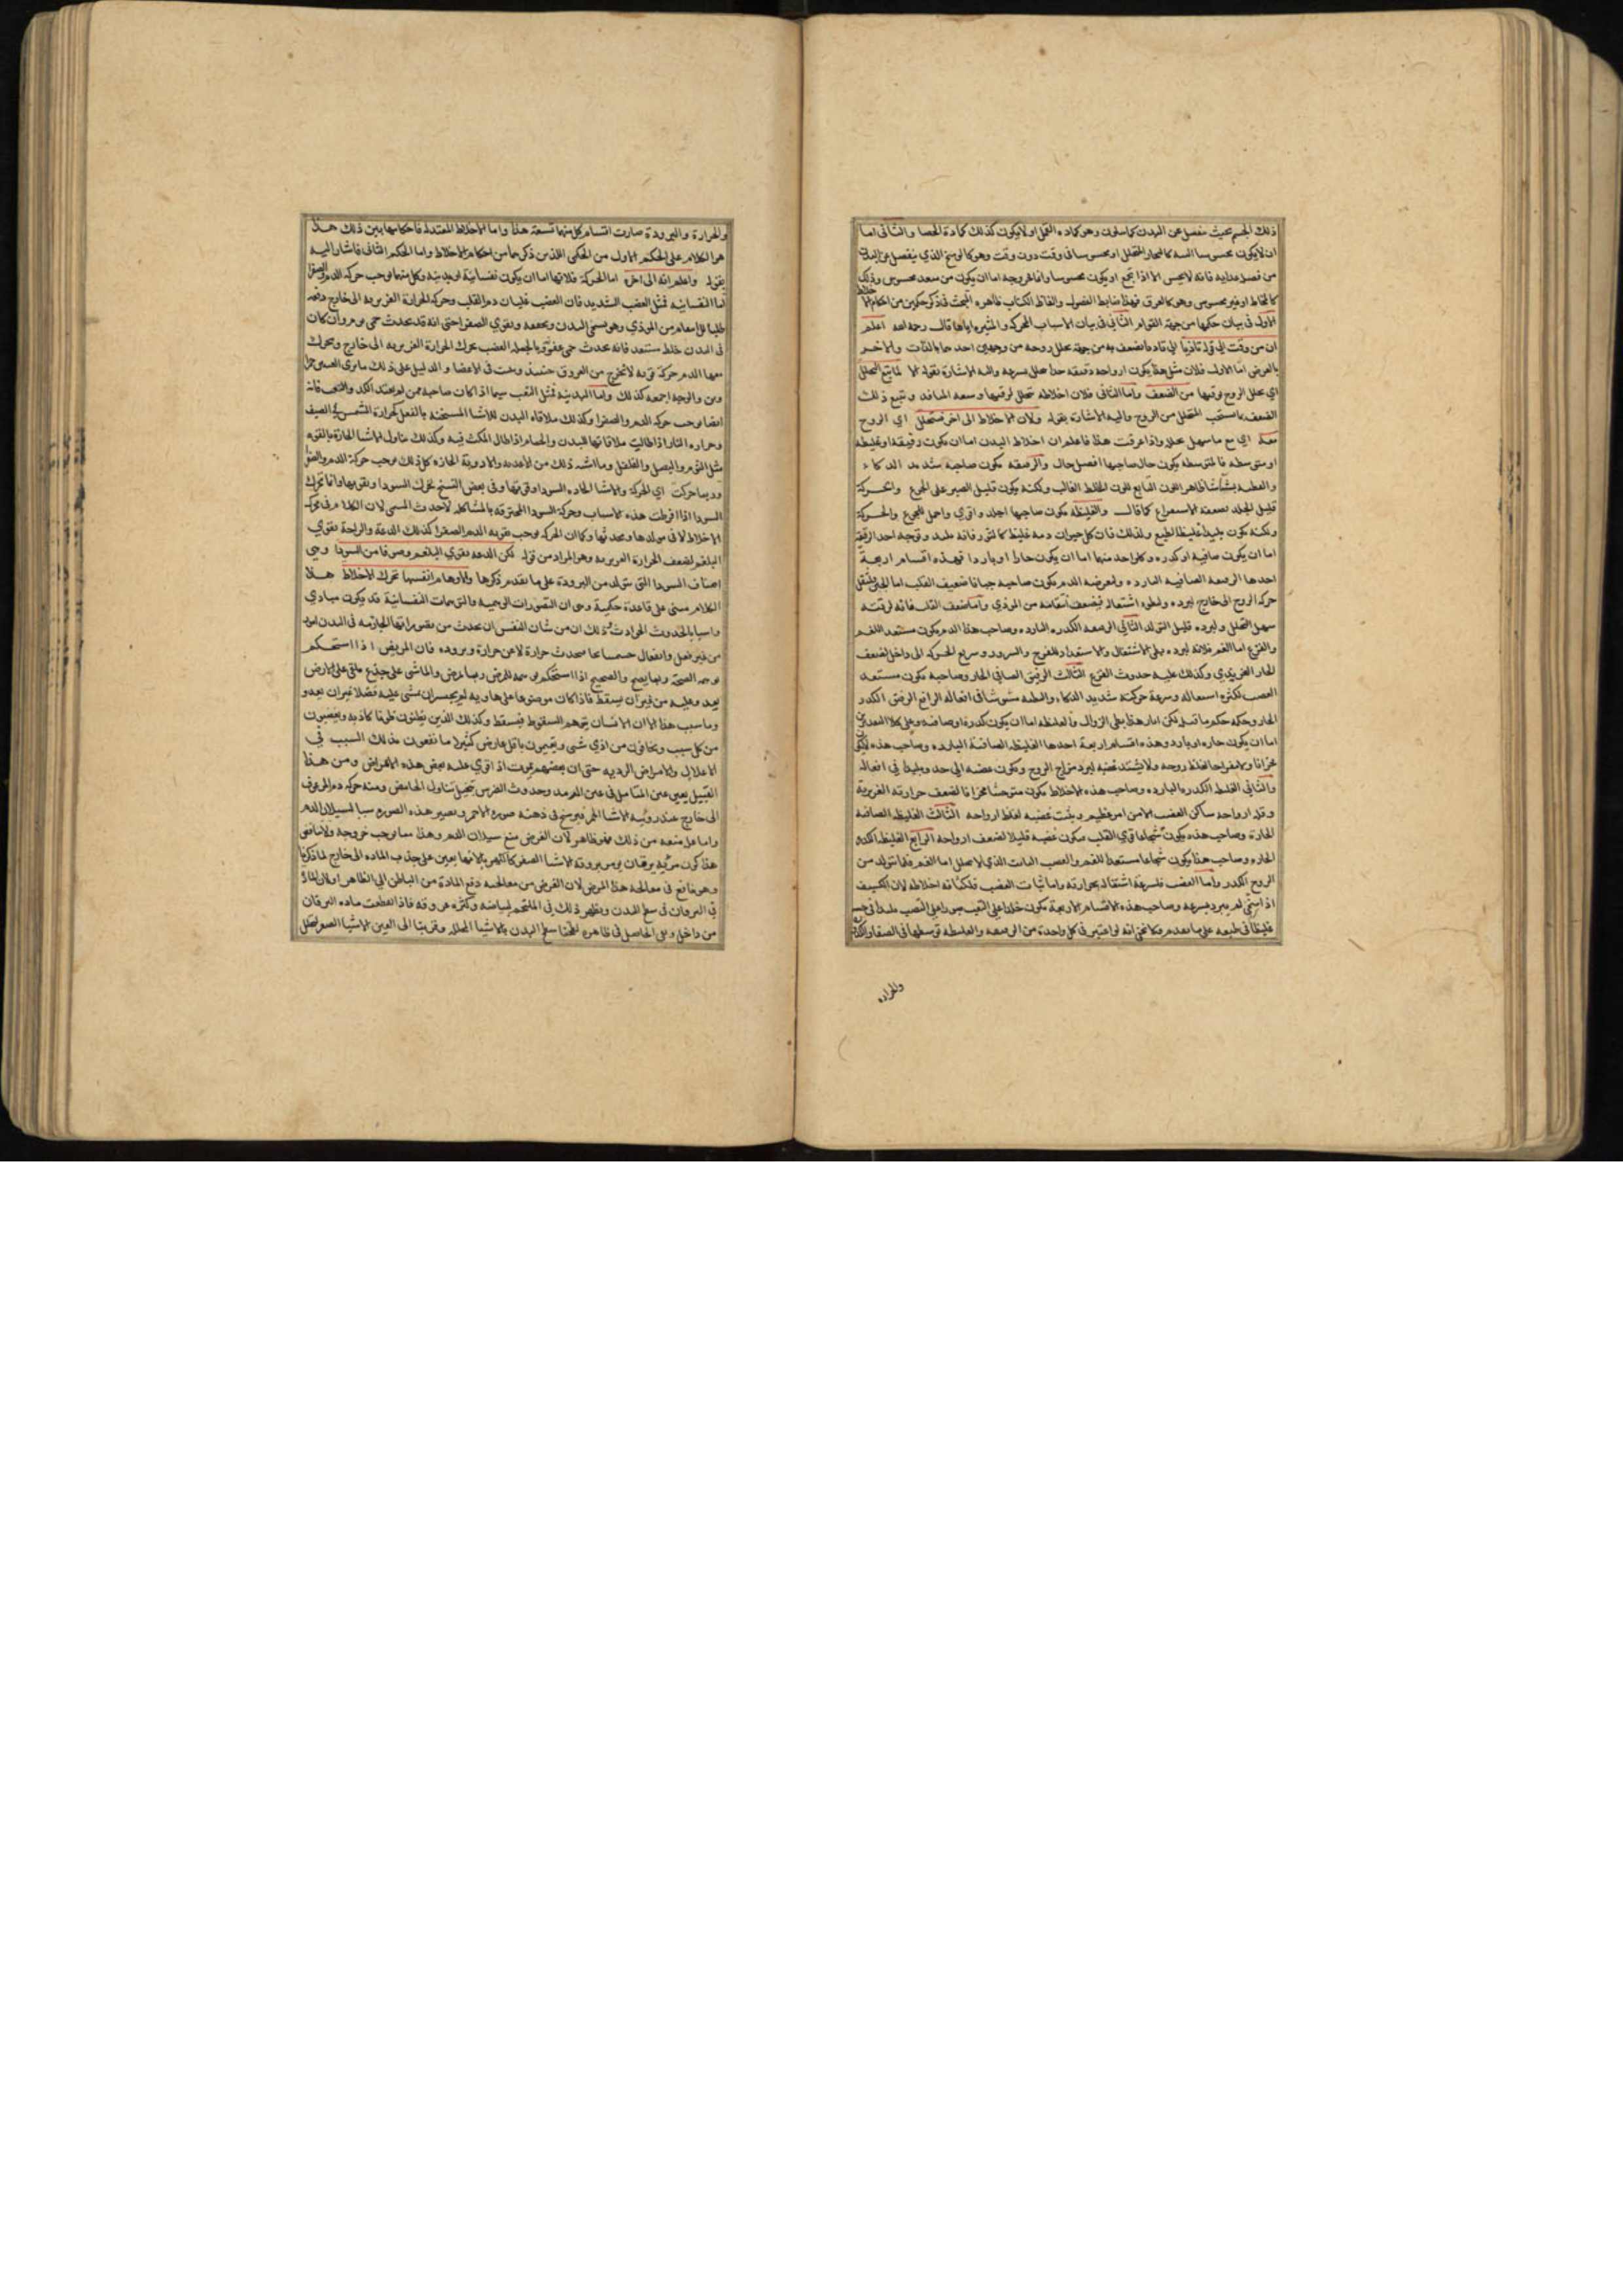 ذلك الجسم بحيث منفصل عن البدن كما سلون وهو كماده القمل اولا يكون كذلك كمادة الحصا والثانى اما
ان لا يكون محسوسا البته كالبخار المتحلل او محسوسا فى وقت دون وقت وهو كالوسخ الذي ينفصل عن البدن
من فضل غدايه فانه لا يحس الا اذا اجتمع او يكون محسوسا دائما لخروجه اما ان يكون من منفد محسوس وذلك
كالمخاط او غير محسوس وهو كالعرق فهذا ضابط الفضول والفاظ الكتاب ظاهره البحث فى ذكر حكمين من احكام الاخلاط
الاول فى بيان حكمها من جهة القوام الثانى فى بيان الاسباب المحركه والمثيره اياها قال رحمه الله اعلم
ان من وقت الى قوله تاذيا الى تاد ما تضعف به من جهة تحلل روحه من وجهين احدهما بالذات والاخر
بالعرض اما الاول فلان مثل هذا يكون ارواحه رقيقه جدا تتحلل بسرعه واليه الاشارة بقوله لما يتبع التحلل
اي تحلل الروح ورقتها من الضعف واما الثانى فلان اخلاطه تتحلل لرقتها وسعه المنافد ويتبع ذلك
الضعف بما يستصحب المتحلل من الروح واليه الاشارة بقوله ولان الاخلاط الى اخره فتتحلل اي الروح
معه اي مع ما سهل تحلله واذا عرفت هذا فاعلم ان اخلاط البدن اما ان يكون رقيقة او غليظة
او متوسطه فالمتوسطه يكون حال صاحبها افضل حال والرقيقه يكون صاحبه شديد الدكاء
قليل الجلد لضعفه الاستفراغ كما قال والغليظه يكون صاحبها اجلد واقوي واحمل للجوع والحركة
ولكنه يكون بليدا غليظ الطبع ولذلك فان كل حيوان دمه غليظ كالثور فانه بليد وتوجه احد الرقيقة
اما ان يكون صافية او كدره وكل واحد منهما اما ان يكون حارا او باردا فهذه اقسام اربعة
احدها الرقيقه الصافيه البارده ولمعرضه الدم يكون صاحبه جبانا ضعيف القلب اما الجبن فلثقل
حركه الروح الى خارج لبرده وبطوء اشتعاله فيضعف انتقامه من الموذي واما ضعف القلب فانه لرقته
سهل التحلل ولبرده قليل التولد الثانى الرقيقه الكدره البارده وصاحب هذا الدم يكون مستعد للغم
والفزع اما الغم فلانه لبرده بطى الاشتعال والاستعداد للفرح والسرور وسريع الحركه الى داخل لضعف
الحار الغريزي وكذلك عليه حدوث الفزع الثالث الرقيق الصافى الحار وصاحبه يكون مستعد
الغضب لكثره اشتعاله وسرعة حركته شديد الدكاء والفطنه مشوشا فى افعاله الرابع الرقيق الكدر
الحار وحكمه حكم ما قبله لكن امار هذا بطى الزوال والغليظه اما ان يكون كدرة او صافيه وعلى كلا التقديرين
اما ان يكون حاره او بارده وهذه اقسام اربعة احدها الغليظه الصافية البارده وصاحب هذه لا يكون
محزانا ولا مفراحا لغلظ روحه ولا يشتد غضبه لبرد مزاج الروح ويكون غضبه الى حد وبليدا فى افعاله
والثانى الغليظ الكدره البارده وصاحب هذه الاخلاط يكون متوحشا محزانا لضعف حرارته الغريزية
وقله ارواحه ساكن الغضب الا من امر عظيم ويثبت غضبه لغلظ ارواحه الثالث الغليظه الصافيه
الحارة وصاحب هذه يكون شجاعا قوي القلب ويكون غضبه قليلا لضعف ارواحه الرابع الغليظه الكدره
الحاره وصاحب هذا يكون شجاعا مستعدا للغم والغضب الثابت الذي لا يتحلل اما الغم فلما يتولد من
الروح الكدر واما الغضب فلسرعة اشتعاله بحرارته واما ثبات الغضب فلكثافه اخلاطه لان الكثيف
اذا سخن لم يبرد بسرعه وصاحب هذه الاقسام الاربعة يكون جلدا على التعب صبورا على النصب
والحراره
والحرارة والبرودة صارت اقسام كل منها تسعة هذا واما الاخلاط المعتدله فاحكامها بين ذلك هذا
هو الكلام على الحكم الاول من الحكمين اللذين ذكرهما من احكام الاخلاط واما الحكم الثانى فاشار اليه
بقوله واعلم انه الى اخره اما الحركة فلانها اما ان يكون نفسانية او بدنيه وكل منهما يوجب حركه الدم والصفرا
اما النفسانيه فمثل الغضب الشديد فان الغضب غليان دم القلب وحركه الحرارة الغريزيه الى خارج دفعه
طلبا للانتقام من الموذي وهو يسخن البدن ويجففه ويقوي الصفرا حتى انه قد يحدث حمى يوم وان كان
فى البدن خلط مستعد فانه يحدث حمى عفونه وبالجمله الغضب يحرك الحرارة الغريزيه الى خارج ويحرك
معها الدم حركة قويه لا تخرج من العروق حينئذ وينبت فى الاعضا والدليل على ذلك ما يرى العين حمرا
وين والوجه اجمعه كذلك واما البدنيه فمثل التعب سيما اذا كان صاحبه ممن لم يعتد الكد والتعب فانه
ايضا يوجب حركه الدم والصفرا وكذلك ملاقاه البدن للاشيا المسخنه بالفعل كحرارة الشمس فى الصيف
وحراره النار اذا طالت ملاقاتها للبدن والحمام اذا طال المكث فيه وكذلك تناول الاشيا الحارة بالقوه
مثل الثوم والبصل والفلفل وما اشبه ذلك من الاغديه والادوية الحاره كل ذلك يوجب حركة الدم والصفرا
وربما حركت اي الحركة والاشيا الحاره السودا وقوتها وفى بعض النسخ تحرك السودا وتقويها وانما تحرك
السودا اذا افرطت هذه الاسباب وحركة السودا المحترقه بالمشاكله لا حدث المسمى لان الكلام فى محركه
الاخلاط لا فى مولدها ومحدثها وكما ان الحركه يوجب تقويه الدم والصفرا كذلك الدعة والراحة تقوي
البلغم لضعف الحرارة الغريزيه وهو المراد من قوله لكن الدعه تقوي البلغم وصنوفا من السودا وهى
اصناف السودا التى تتولد من البرودة على ما تقدم ذكرها والاوهام انفسها تحرك الاخلاط هذا
الكلام مبنى على قاعدة حكمية وهى ان التصورات الوهميه والتوهمات النفسانية قد يكون مبادي
واسبابا لحدوث الحوادث وذلك ان من شان النفس ان يحدث من تصوراتها الجازمه فى البدن امور
من غير فعل وانفعال جسمانى فيحدث حرارة لا عن حرارة وبروده فان المريض اذا استحكم
توهمه الصحة ربما يصح والصحيح اذا استحكم توهمه للمرض ربما يمرض والماشى على جذع ملقى على الارض
يعدو عليه من غير ان يسقط فاذا كان موضوعا على هاويه لم يجسر ان يمشى عليه فضلا عن ان يعدو
وما سبب هذا الا ان الانسان يتوهم السقوط فيسقط وكذلك الذين يظنون ظنونا كاذبه ويغضبون
من كل سبب ويخافون من اذي شى ويتغيرون باقل عارض كثيرا ما يقعون بذلك السبب فى
الاعلال والامراض الرديه حتى ان بعضهم يموت اذا قوي عليه بعض هذه الاعراض ومن هذا
القبيل تغير عين المتامل فى عين الارمد وحدوث الضرس بتخيل تناول الحامض ومنه حركه دم المرعوف
الى خارج عند رؤية الاشيا الحمر فيرسخ فى ذهنه صوره الاحمر ويصير هذه الصوره سببا لسيلان الدم
واما على منعه من ذلك فهو ظاهر لان الغرض منع سيلان الدم وهذا مما يوجب خروجه ولا ينافى
هذا كون من به يرقان يومر بروية الاشيا الصفر كالكهربا لانها يعين على جذب الماده الى خارج لما ذكرنا
وهو نافع فى معالجة هذا المرض لان الغرض من معالجته دفع المادة من الباطن الى الظاهر اولا لان المادة
فى اليرقان فى سطح البدن ويظهر ذلك فى الملتحم لبياضه وكثره عروقه فاذا انقطعت ماده اليرقان
من داخل وبقى الحاصل فى ظاهره لطخنا سطح البدن بالاشيا المحلله وقربنا الى العين الاشيا الصفر لتحلل